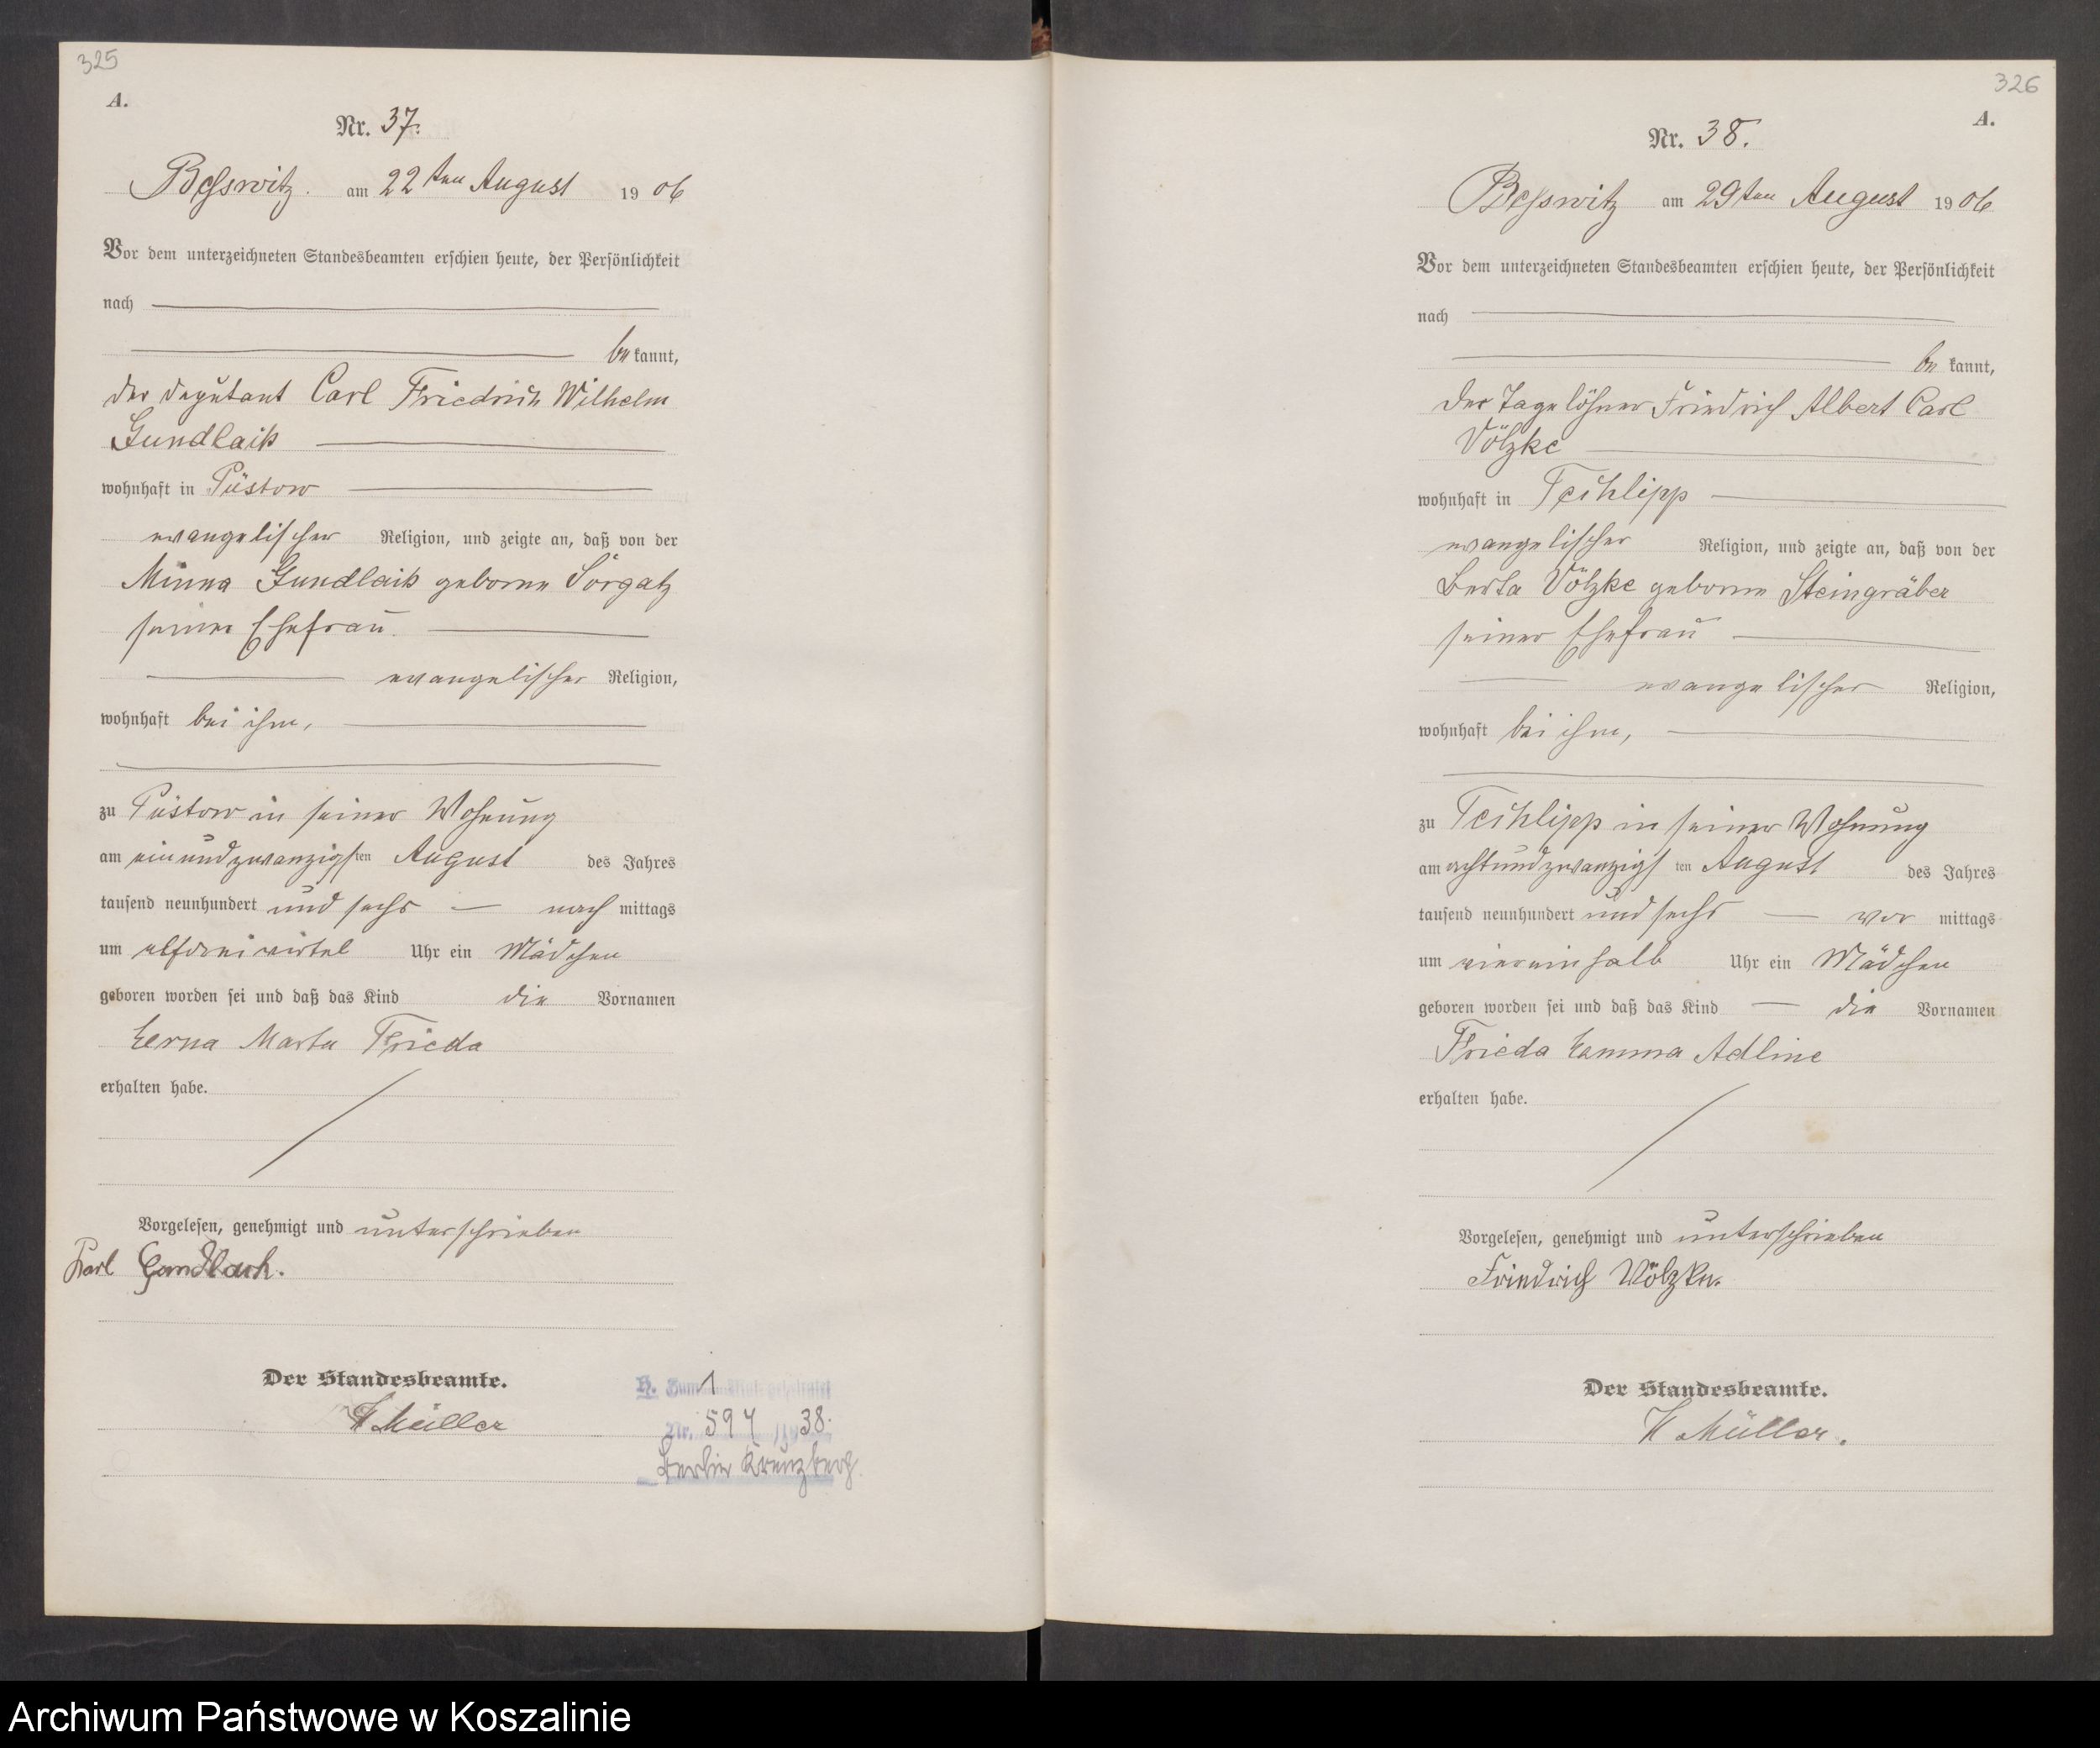 325
A.
Nr. 37.
Beßswitz. am 22ten August 1906
Vor dem unterzeichneten Standesbeamten erschien heute, der Persönlichkeit
nach
bekannt,
der Deputant Carl Friedrich Wilhelm
Gundlach
wohnhaft in Püstow
evangelischer Religion, und zeigte an, daß von der
Minna Gundlach geborne Sorgatz
seiner Ehefrau.
evangelischer Religion,
wohnhaft bei ihm,
zu Püstow in seiner Wohnung
am einundzwanzigsten August des Jahres
tausend neunhundert und sechs nachmittags
um elfdreiviertel Uhr ein Mädchen
geboren worden sei und daß das Kind die Vornamen
Erna Marta Frieda
erhalten habe.
Vorgelesen, genehmigt und unterschrieben
Karl Gundlach.
Der Standesbeamte.
Müller
H. 1
Nr. 594 1938.
Berlin Kreuzberg.
326
A.
Nr. 38.
Beßswitz am 29ten August 1906
Vor dem unterzeichneten Standesbeamten erschien heute, der Persönlichkeit
nach
bekannt,
der Tagelöhner Friedrich Albert Carl
Völzke
wohnhaft in Techlipp
evangelischer Religion, und zeigte an, daß von der
Berta Völzke geborne Steingräber
seiner Ehefrau
evangelischer Religion,
wohnhaft bei ihm,
zu Techlipp in seiner Wohnung
am achtundzwanzigsten August des Jahres
tausend neunhundert und sechs vor mittags
um viereinhalb Uhr ein Mädchen
geboren worden sei und daß das Kind die Vornamen
Frieda Emma Adline
erhalten habe.
Vorgelesen, genehmigt und unterschrieben
Friedrich Völzke.
Der Standesbeamte.
Müller.
Archiwum Państwowe w Koszalinie